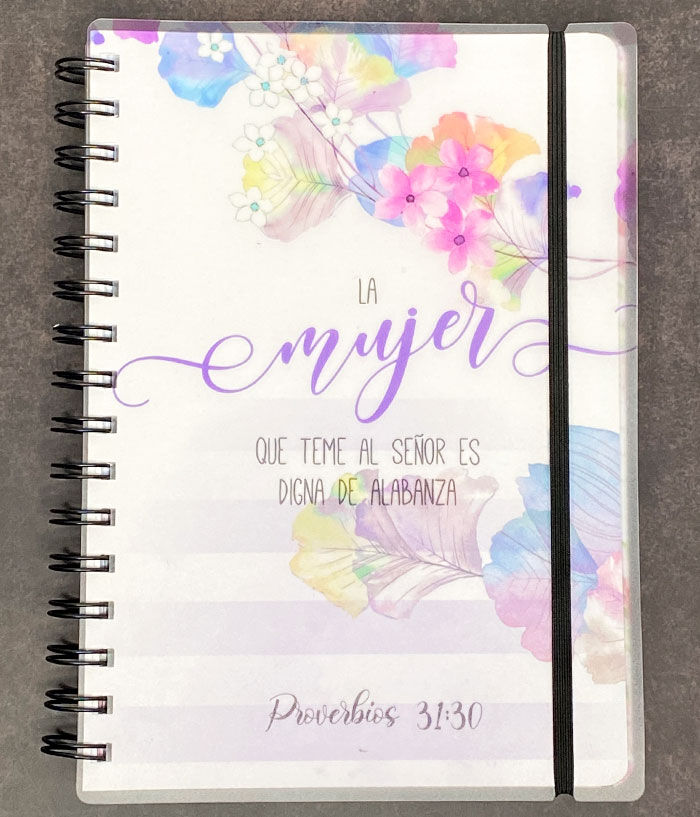 LA
mujer
QUE TEME AL SEÑOR ES
DIGNA DE ALABANZA
Proverbios 31:30